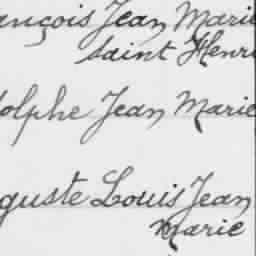 ançois Jean Marie
Saint Henri
olphe Jean Marie
guste Louis Jean
Marie